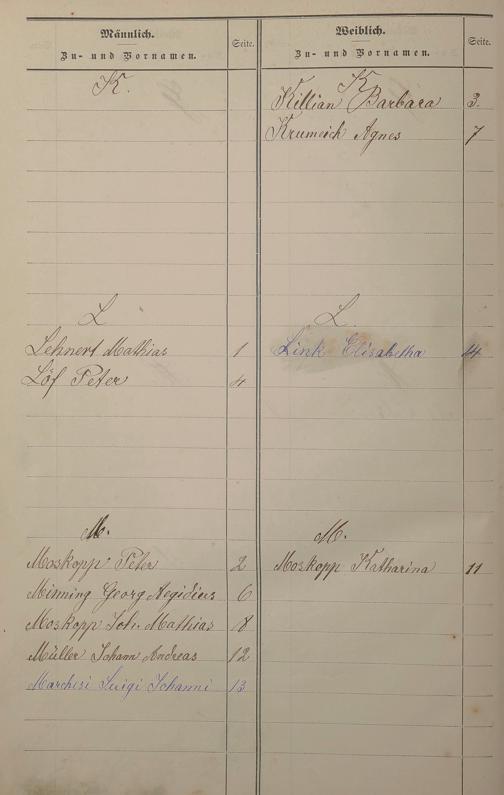 Männlich.
Zu- und Vornamen.
Seite.
K.
L
Lehnert Mathias 1
Löf Peter 4
M.
Moskopp Peter 2
Minning Georg Aegidius 6
Moskopp Joh. Mathias 8
Müller Johann Andreas 12
Marchesi Luigi Johanni 13
Weiblich.
Zu- und Vornamen.
Seite.
K
Killian Barbara 3.
Krumeich Agnes 7
L
Link Elisabetha 14
M.
Moskopp Katharina 11